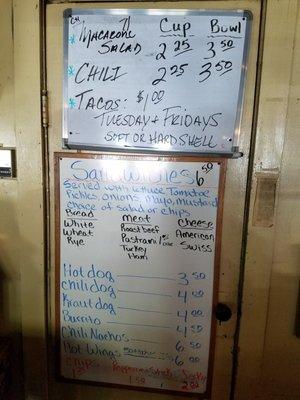 Cup Bowl
* Macaroni
Salad 2 25 3 50
* Chili 2 25 3 50
* Tacos: $1 00
Tuesday + Fridays
Soft or Hard Shell
Sandwiches 6 50
Served with Lettuce Tomatoe
Pickles, onions, mayo, mustard
choice of salad or chips
Bread meat cheese
White Roast beef American
Wheat Pastrami Swiss
Rye Turkey
Ham
Hot dog 3 50
chili dog 4 00
Kraut dog 4 00
Burrito 4 50
Chili Nachos 6 50
Hot Wings 6 00
chips Pepperoni Stick Jerky
1 50 2 00